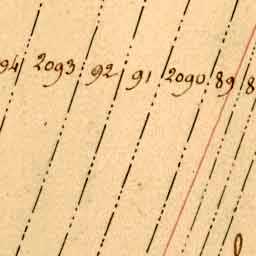 94 2093 92 91 2090 89 8